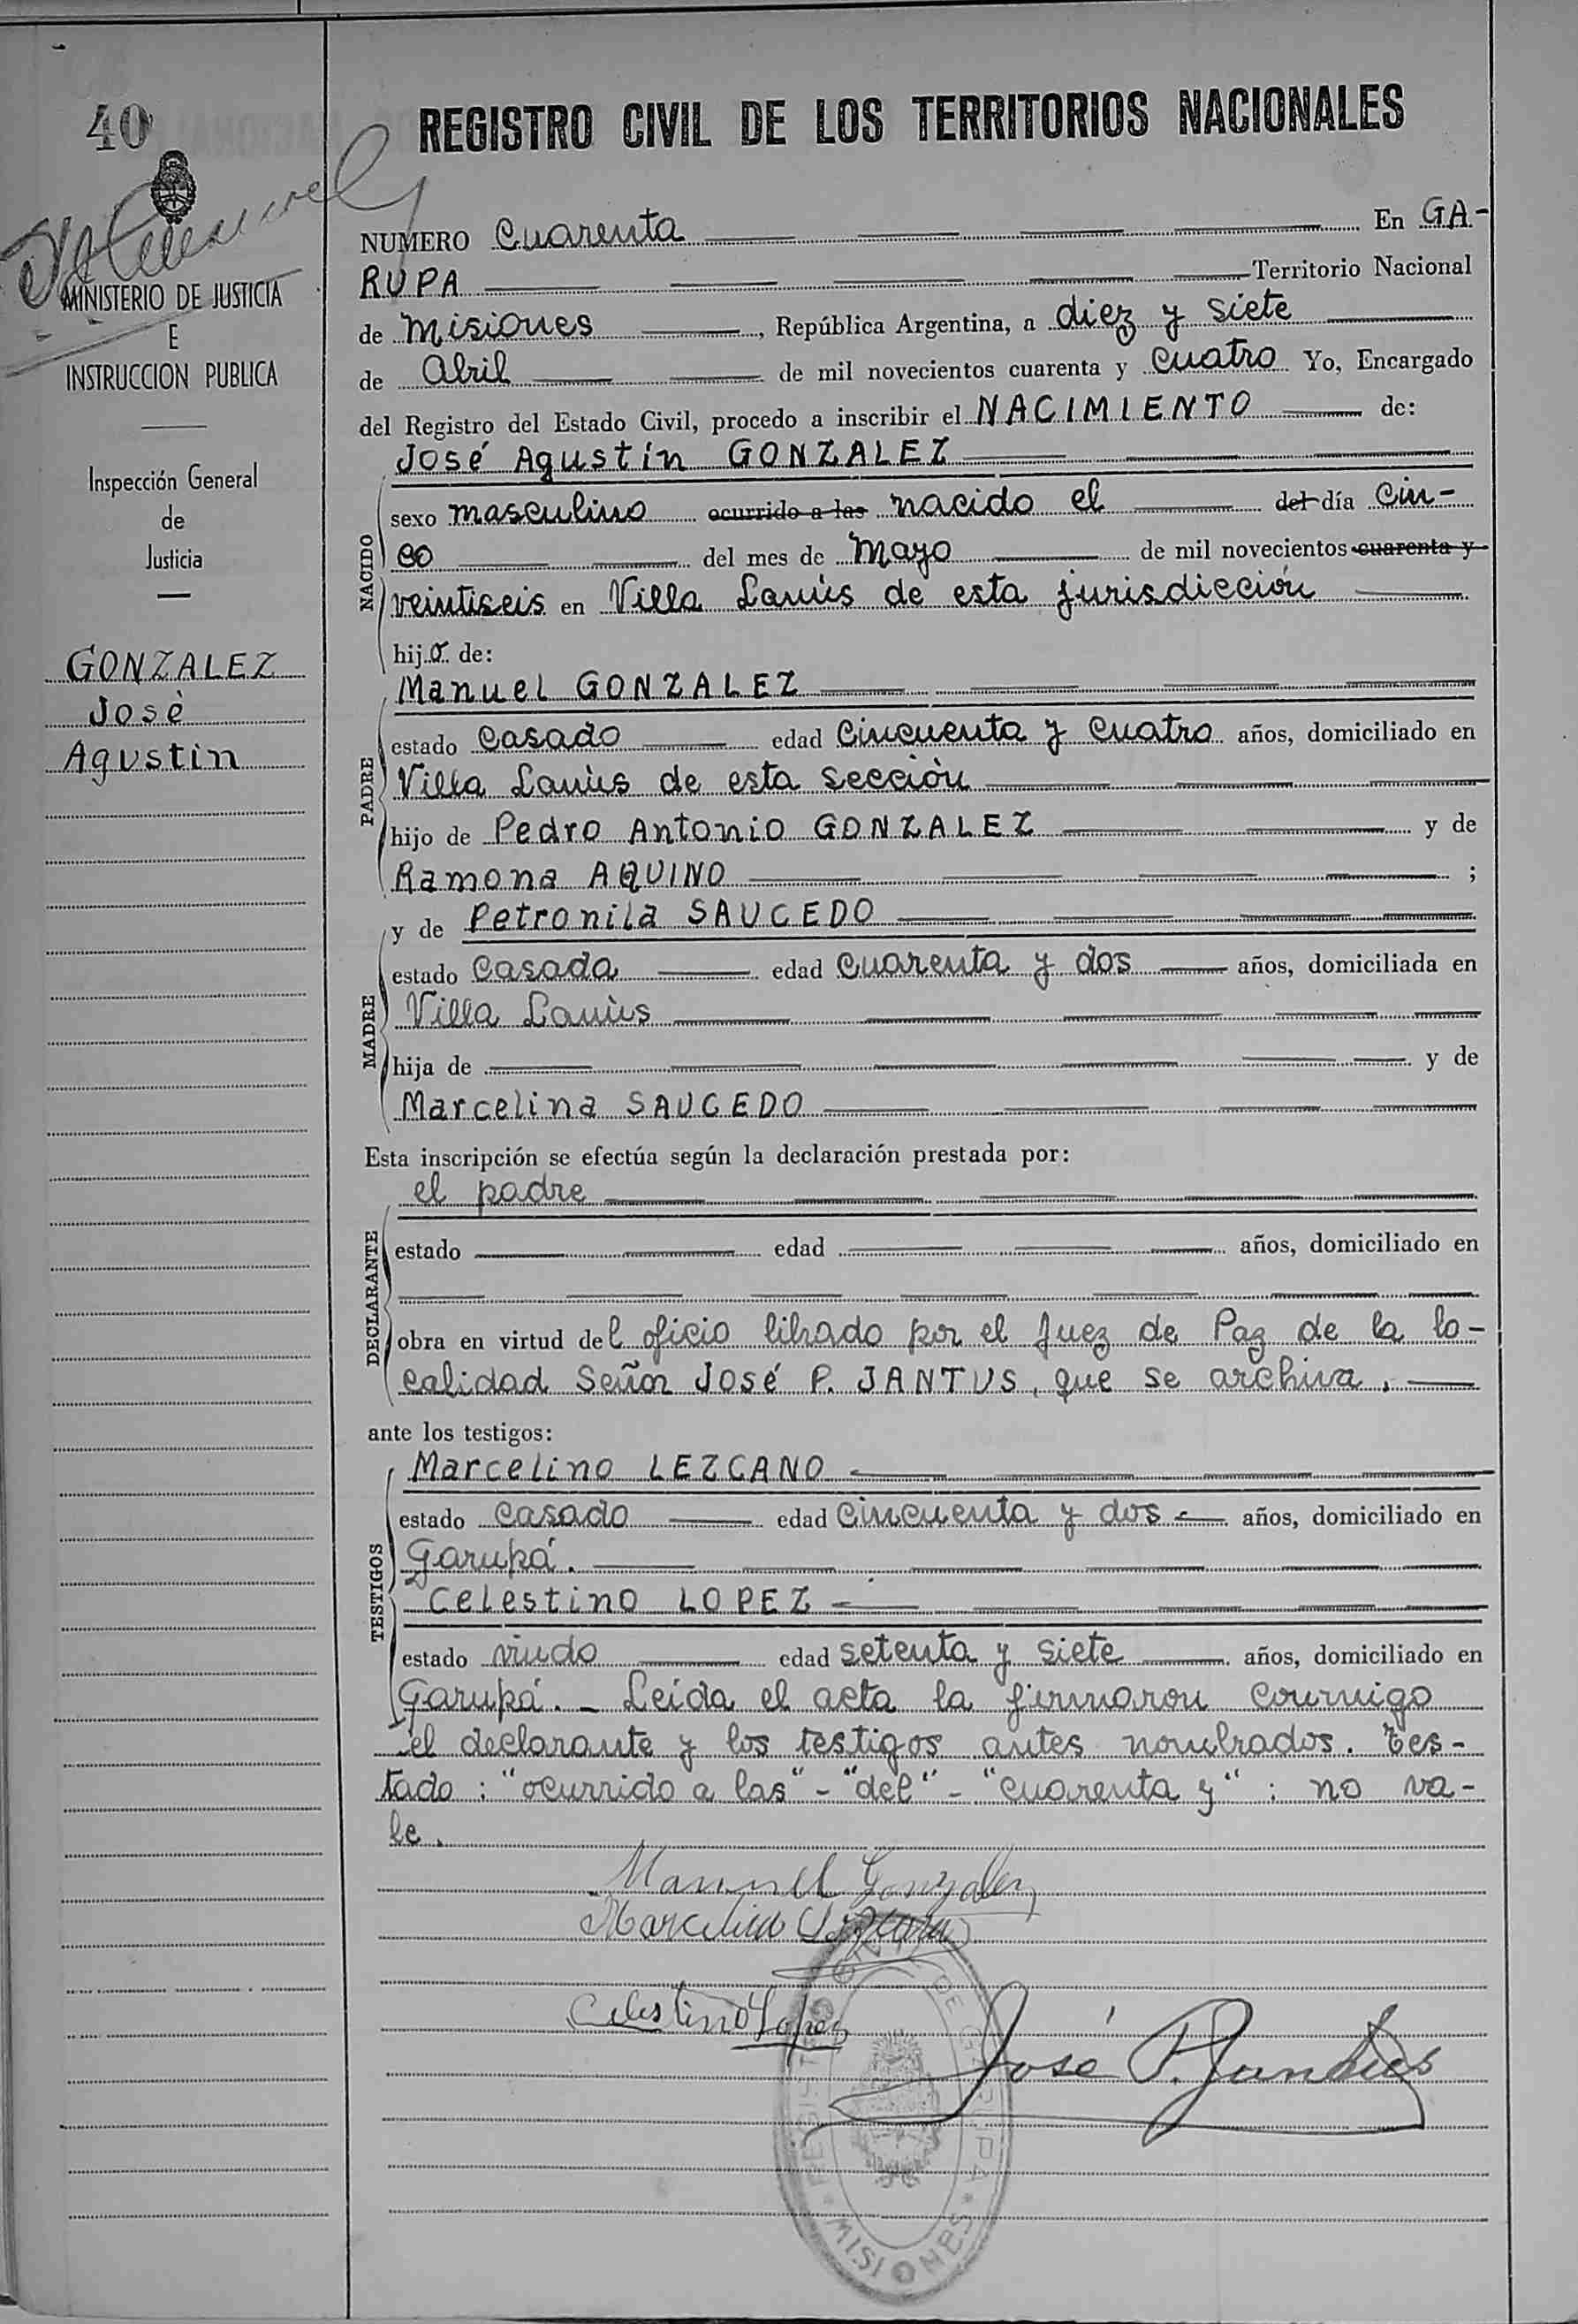 40
REGISTRO CIVIL DE LOS TERRITORIOS NACIONALES
MINISTERIO DE JUSTICIA
E
INSTRUCCION PUBLICA
Inspección General
de
Justicia
GONZALEZ
Josè
Agustin
NUMERO Cuarenta En GA-
RUPA Territorio Nacional
de Misiones, República Argentina, a diez y siete
de Abril de mil novecientos cuarenta y cuatro Yo, Encargado
del Registro del Estado Civil, procedo a inscribir el NACIMIENTO de:
José Agustín GONZALEZ
NACIDO
sexo masculino ocurrido a las nacido el del día cin-
co del mes de Mayo de mil novecientos cuarenta y
veintiseis en Villa Lanús de esta jurisdicción
hijo de:
Manuel GONZALEZ
PADRE
estado casado edad cincuenta y cuatro años, domiciliado en
Villa Lanùs de esta secciòn
hijo de Pedro Antonio GONZALEZ y de
Ramona AQUINO ;
y de Petronila SAUCEDO
MADRE
estado casada edad cuarenta y dos años, domiciliada en
Villa Lanùs
hija de y de
Marcelina SAUCEDO
Esta inscripción se efectúa según la declaración prestada por:
el padre
DECLARANTE
estado edad años, domiciliado en
obra en virtud del oficio librado por el Juez de Paz de la lo-
calidad Señor José P. JANTUS, que se archiva.
ante los testigos:
Marcelino LEZCANO
TESTIGOS
estado casado edad cincuenta y dos - años, domiciliado en
Garupá.
Celestino LOPEZ
estado viudo edad setenta y siete años, domiciliado en
Garupá. - Leída el acta la firmaron conmigo
el declarante y los testigos antes nombrados. Tes-
tado: "ocurrido a las" - "del" - "cuarenta y": no va-
le.
Manuel Gonzalez
Marcelino Lezcano
Celestino Lopez
José P. Jantus
REGISTRO CIVIL DE GARUPA * MISIONES *